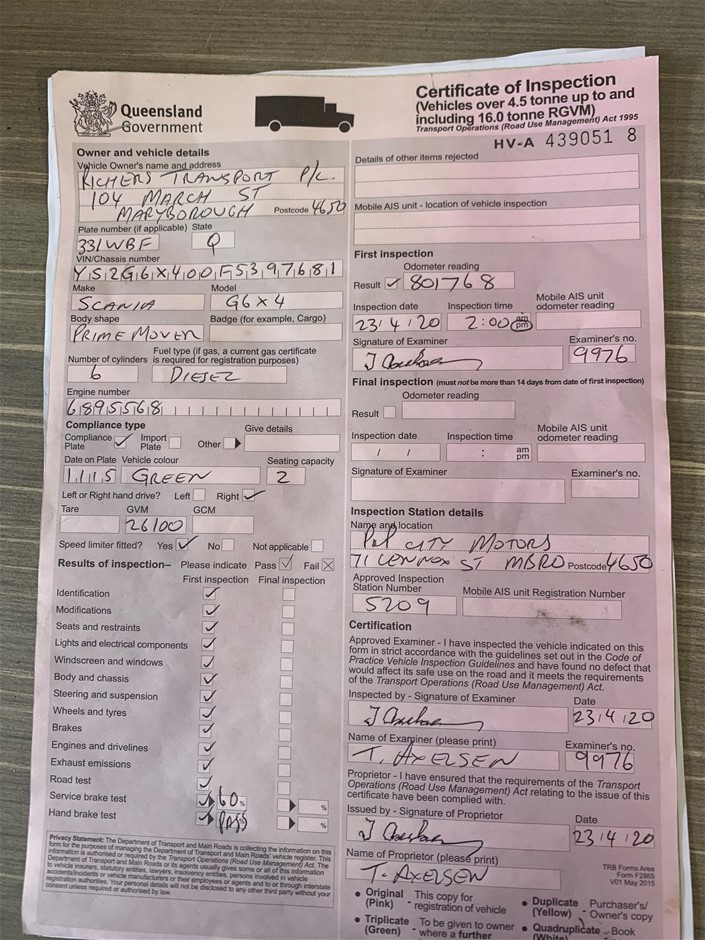 Queensland
Government
Certificate of Inspection
(Vehicles over 4.5 tonne up to and
including 16.0 tonne RGVM)
Transport Operations (Road Use Management) Act 1995
HV-A 439051 8
Owner and vehicle details
Vehicle Owner's name and address
RICHERS TRANSPORT P/L
104 MARCH ST
MARYBOROUGH Postcode 4650
Plate number (if applicable) State
331WBF Q
VIN/Chassis number
YS2G6X400F5397681
Make Model
SCANIA G6X4
Body shape Badge (for example, Cargo)
PRIME MOVER
Number of cylinders Fuel type (if gas, a current gas certificate
is required for registration purposes)
6 DIESEL
Engine number
6895568
Compliance type
Compliance Plate Import Plate Other Give details
Date on Plate Vehicle colour Seating capacity
11 15 GREEN 2
Left or Right hand drive? Left Right
Tare GVM GCM
26100
Speed limiter fitted? Yes No Not applicable
Results of inspection– Please indicate Pass Fail
First inspection Final inspection
Identification
Modifications
Seats and restraints
Lights and electrical components
Windscreen and windows
Body and chassis
Steering and suspension
Wheels and tyres
Brakes
Engines and drivelines
Exhaust emissions
Road test
Service brake test 60 % %
Hand brake test PASS %
Privacy Statement: The Department of Transport and Main Roads is collecting the information on this
form for the purposes of managing the Department of Transport and Main Roads' vehicle register. This
information is authorised or required by the Transport Operations (Road Use Management) Act. The
Department of Transport and Main Roads or its agents usually gives some or all of this information
to vehicle insurers, statutory entities, lawyers, insolvency entities, persons involved in vehicle
accidents/incidents or vehicle manufacturers or their employees or agents and to or through interstate
registration authorities. Your personal details will not be disclosed to any other third party without your
consent unless required or authorised by law.
Details of other items rejected
Mobile AIS unit - location of vehicle inspection
First inspection
Odometer reading
Result 801768
Inspection date Inspection time Mobile AIS unit
odometer reading
23/4/20 2:00 am pm
Signature of Examiner Examiner's no.
9976
Final inspection (must not be more than 14 days from date of first inspection)
Odometer reading
Result
Inspection date Inspection time Mobile AIS unit
odometer reading
/ / : am pm
Signature of Examiner Examiner's no.
Inspection Station details
Name and location
CITY MOTORS
71 LENNOX ST MBRO Postcode 4650
Approved Inspection
Station Number Mobile AIS unit Registration Number
5209
Certification
Approved Examiner - I have inspected the vehicle indicated on this
form in strict accordance with the guidelines set out in the Code of
Practice Vehicle Inspection Guidelines and have found no defect that
would affect its safe use on the road and it meets the requirements
of the Transport Operations (Road Use Management) Act.
Inspected by - Signature of Examiner Date
23/4/20
Name of Examiner (please print) Examiner's no.
T. AXELSEN 9976
Proprietor - I have ensured that the requirements of the Transport
Operations (Road Use Management) Act relating to the issue of this
certificate have been complied with.
Issued by - Signature of Proprietor Date
23/4/20
Name of Proprietor (please print)
T. AXELSEN
TRB Forms Area
Form F2865
V01 May 2015
• Original (Pink) - This copy for registration of vehicle
• Duplicate (Yellow) - Purchaser's/ Owner's copy
• Triplicate (Green) - To be given to owner where a further
• Quadruplicate - Book
(White)